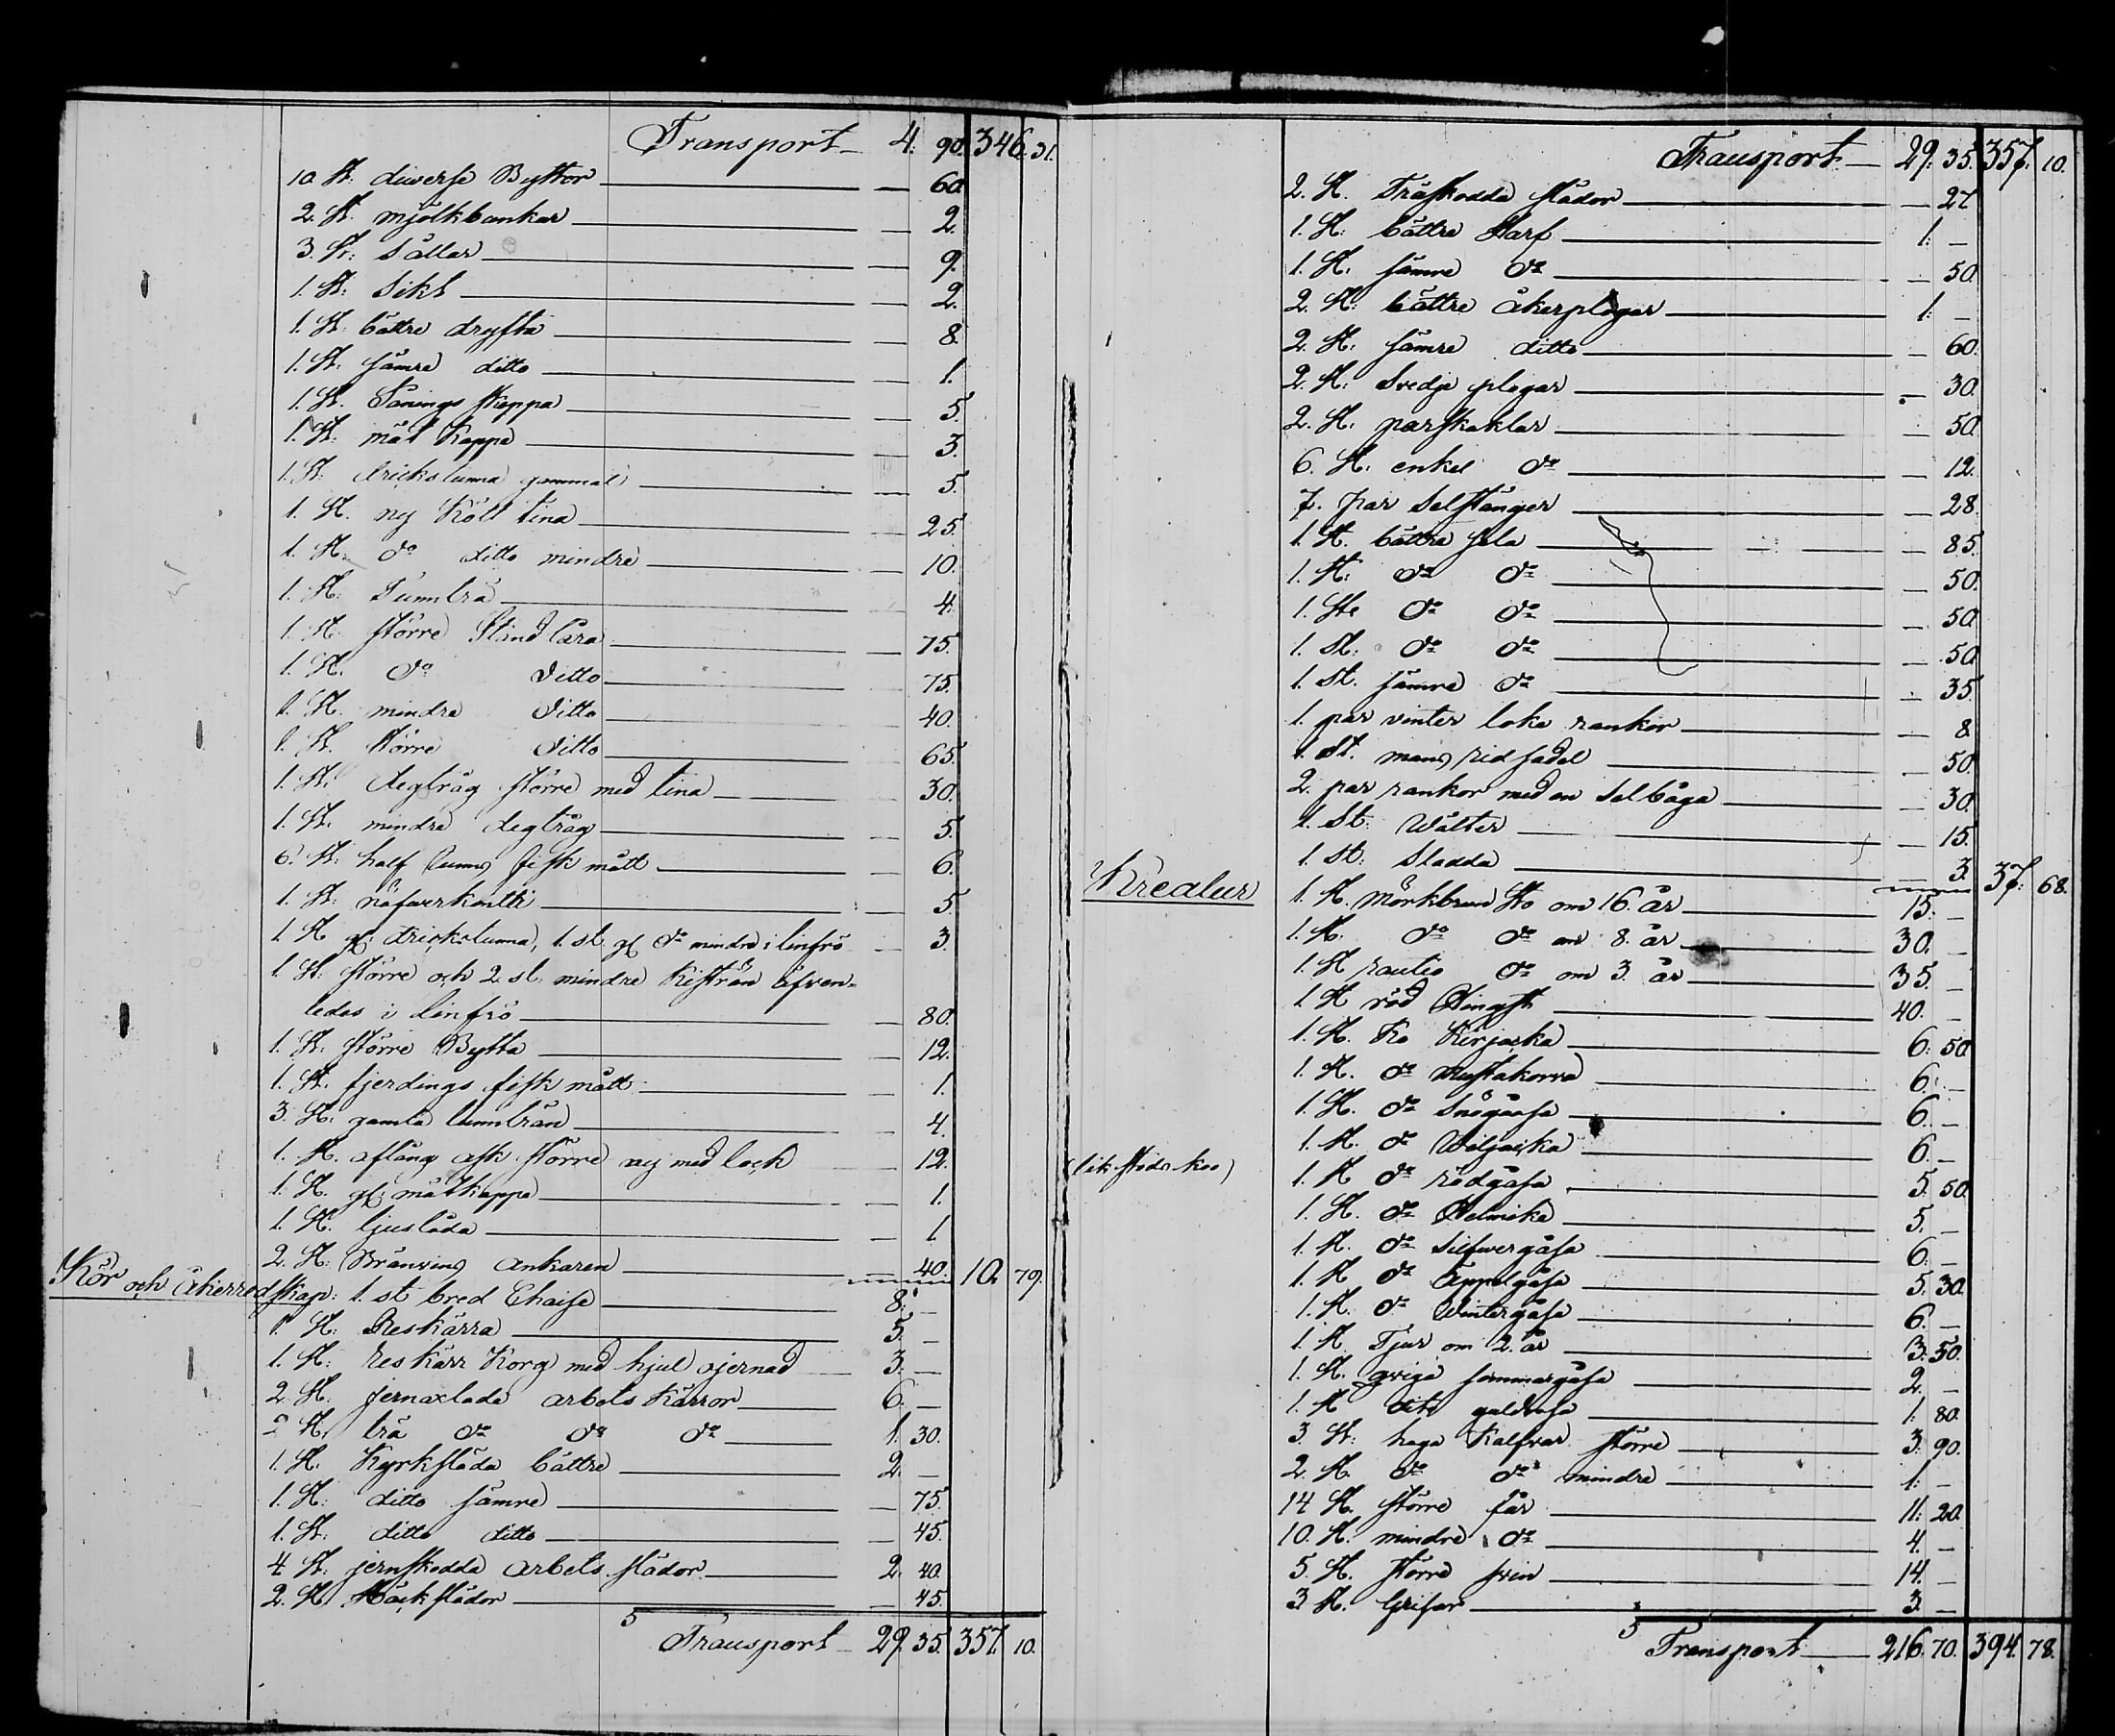 Transport 4. 90. 346. 31.
10 St. diverse Byttor 60
2. St. mjölkbunkar 2.
3. St. Sållar 9.
1. St. Sikt 2.
1. St. bättre dryfta 8.
1. St. sämre ditto 1.
1. St. Sånings skäppa 5.
1. St. mål Kappe 3.
1. St. drickstunna gammal 5.
1. St. ny Kött tina 25.
1. St. do ditto mindre 10.
1. St. Tunnträ 4.
1. St. större Stånd 75.
1. St. do ditto 75.
1. St. mindre ditto 40.
1. St. större ditto 65.
1. St. degtråg större med tina 30.
1. St. mindre degtråg 5.
6. St. half tunns fisk mått 6.
1. St. näfverkontti 5.
1. St gl. drickstunna, 1. st gl do mindre i linfrö 3.
1 St. större och 2 st. mindre Kisträn äfven-
ledes i linfrö 80.
1. St. större Bytta 12.
1. St. fjerdings fisk mått 1.
3. St. gamla tunnträn 4.
1. St. aflång ask större ny med lock 12.
1. St. gl. målkappe 1.
1. St. ljuslåda 1
2. St. Bränvins ankaren 40. 10. 79.
Kör och åkerredskap: 1. st bred Chaise 8. –
1. St. Reskärra 5. –
1. St. reskärr Korg med hjul ojernad 3. –
2. St. jernaxlade arbets Kärror 6. –
2 St. trä do do do 1. 30.
1. St. Kyrksläda bättre 2. –
1. St. ditto sämre 75.
1. St. ditto ditto 45.
4 St. jernskodda arbets slädor 2. 40.
2. St. Häckslädor 45.
5 Transport 29. 35. 357. 10.
Transport 29. 35. 357. 10.
2. St. Träskodda slädor 27
1. St. bättre Harf 1. –
1. St. sämre do 50
2. St. bättre åkerplogar 1. –
2. St. sämre ditto 60.
2. St. Svedje plogar 30.
2. St. parskaklar 50.
6. St. enkel do 12.
7. par Selstänger 28.
1. St. bättre sela 85.
1. St. do do 50.
1. St. do do 50
1. St. do do 50
1. St. sämre do 35.
1. par vinter loka rankor 8.
1. St. mans rid sadel 50.
2. par rankor med en Selbåga 30.
1. St. Wälter 15.
1. St. Sladda 3. 37. 68.
Kreatur 1. St. Mörkbrun Sto om 16. år 15. –
1. St. do do om 8. år 30. –
1. St rautio do om 3. år 35. –
1. St röd Hingst 40. –
1. St. Ko Kirjacka 6. 50
1. St. do Mustakorva 6. –
1. St. do Snögåsa 6. –
1. St. do Weljacka 6. –
(likstods koo) 1. St do rödgåsa 5. 50.
1. St. do Helmika 5. –
1. St. do Silfvergåsa 6. –
1. St do Äppelgåsa 5. 30.
1. St. do Wintergåsa 6. –
1. St. Tjur om 2. år 3. 50.
1. St. qviga sommargåsa 2. –
1. St dito 1. 80.
3. St. haga Kalfvar större 3. 90.
2. St. do do mindre 1. –
14 St. större får 11. 20.
10. St. mindre do 4. –
5. St. större svin 14. –
3 St. Grisar 3. –
5 Transport 216. 70. 394. 78.